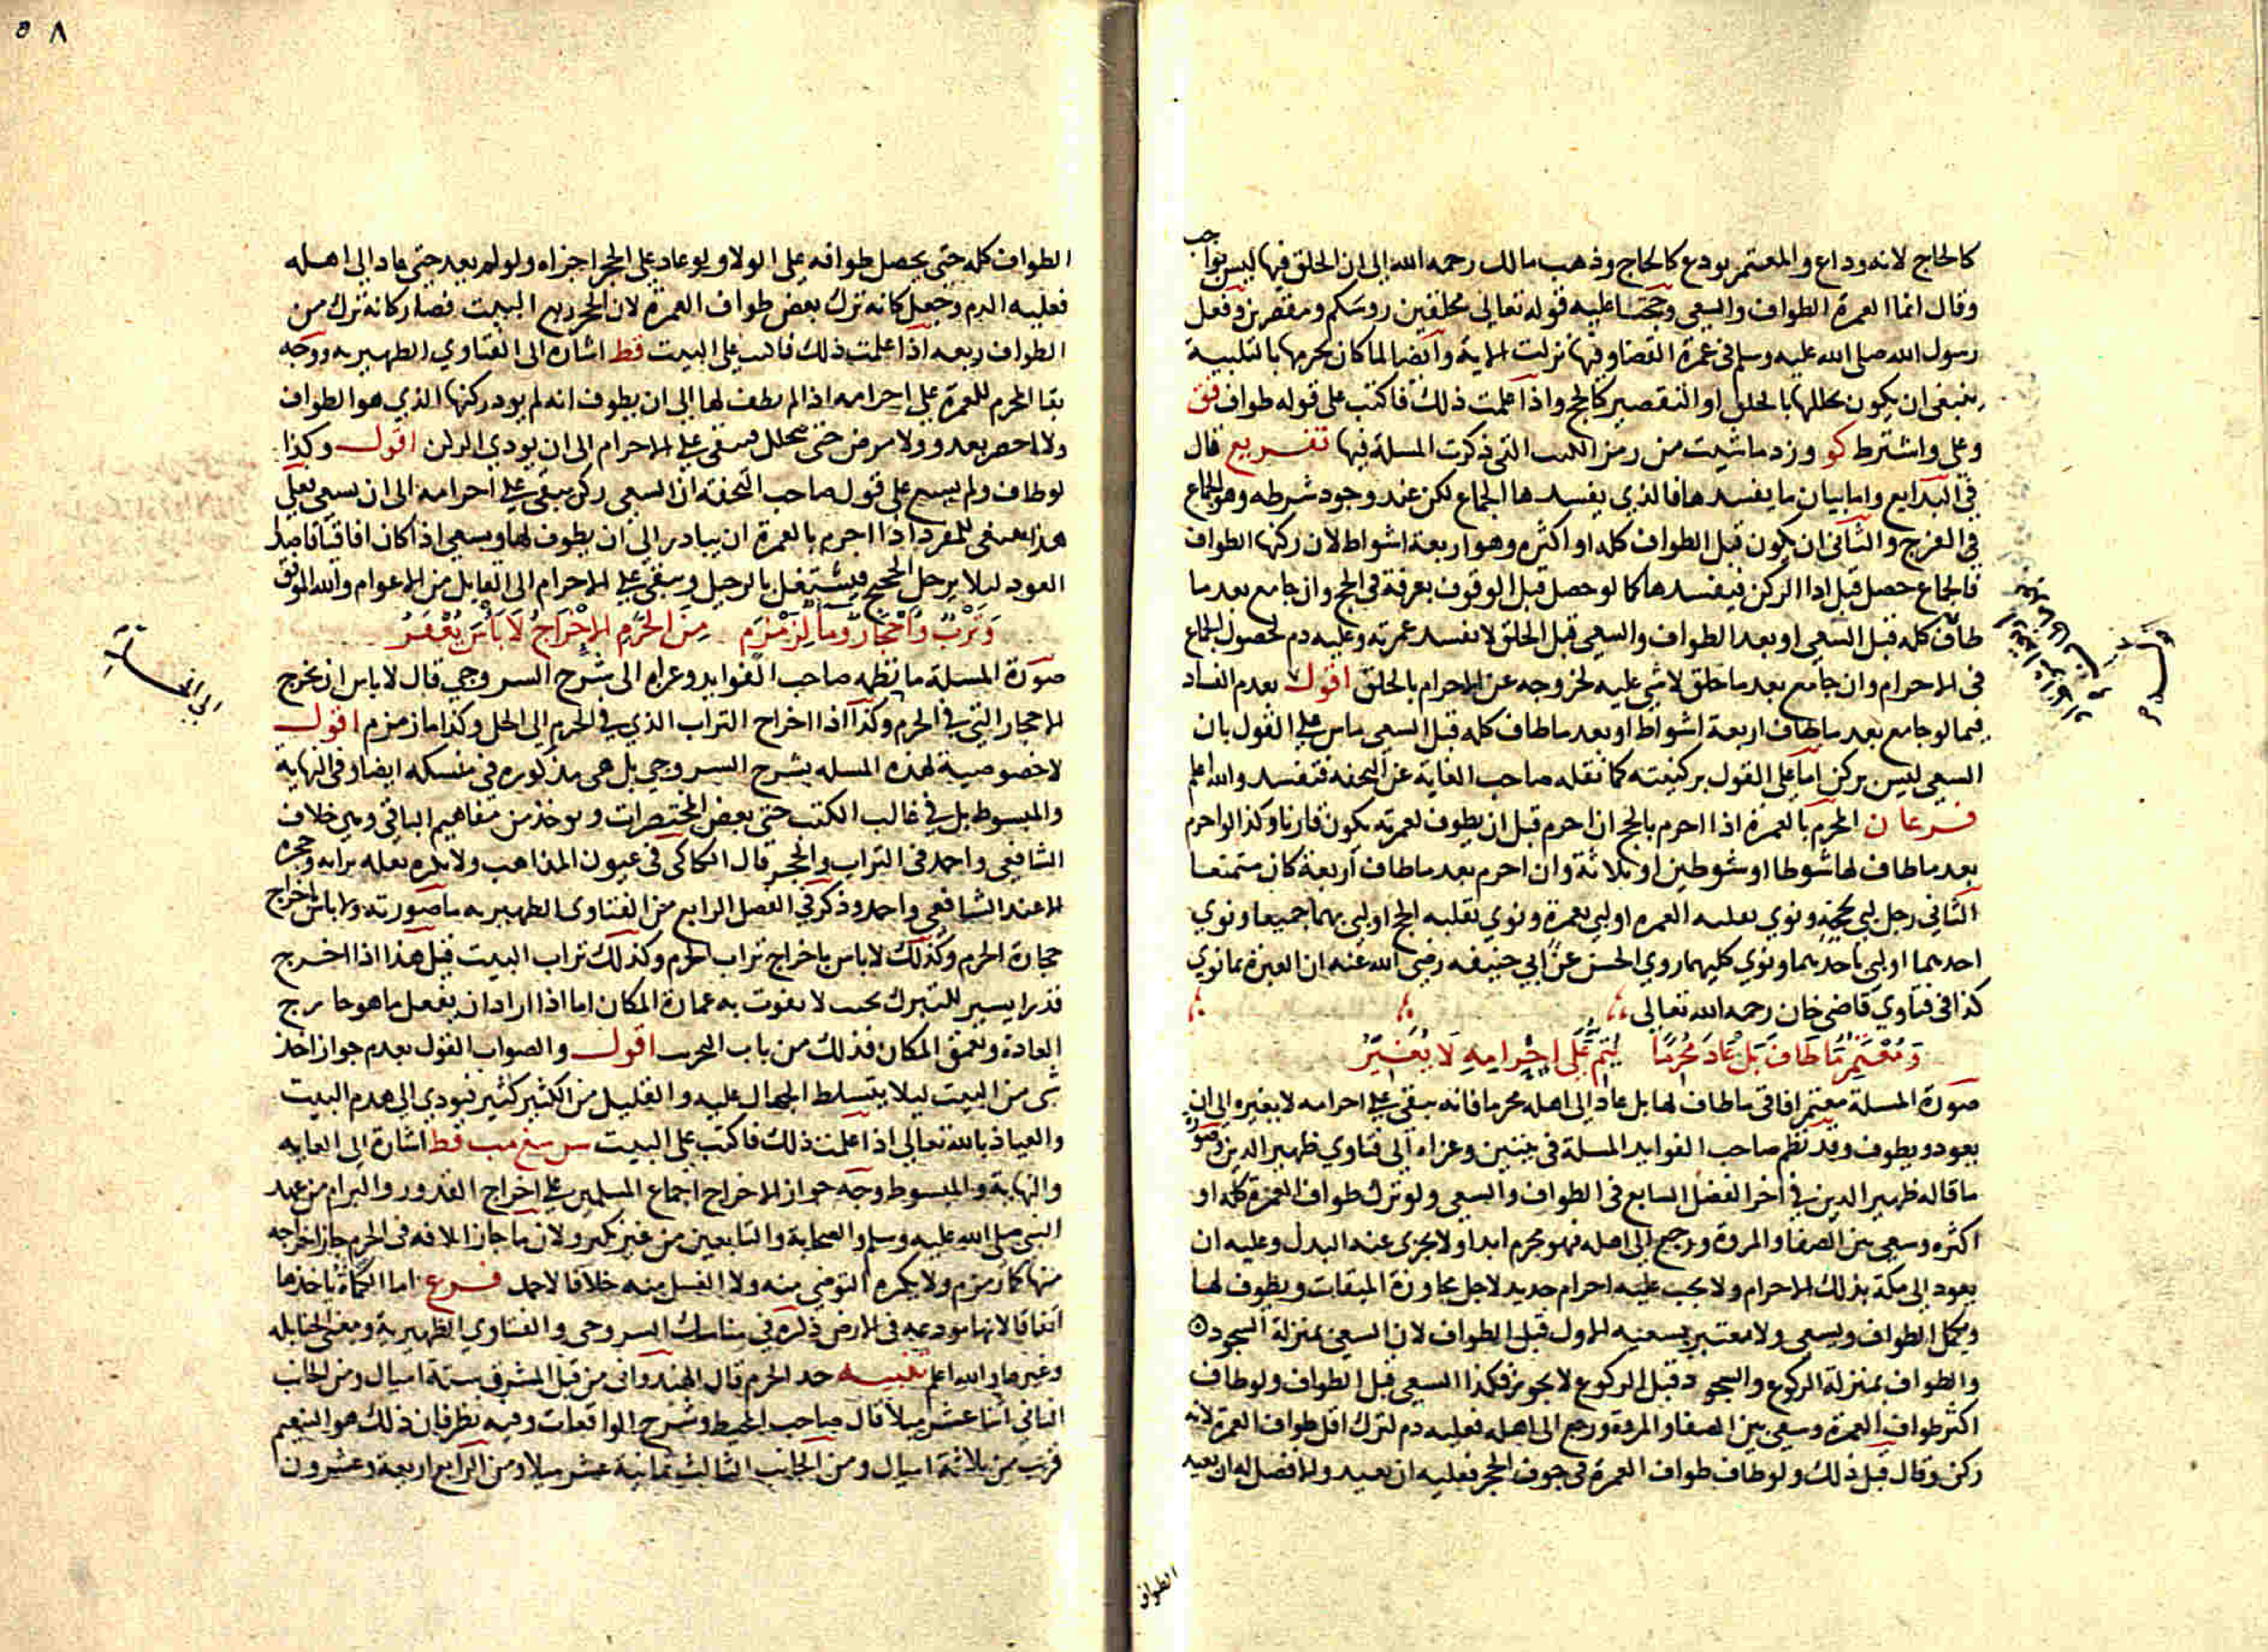 كالحاج لانه وداع والمعتمر يودع كالحاج وذهب مالك رحمه الله الى ان الحلق فيها ليس بواجب
وقال انما العمرة الطواف والسعى وحجتنا عليه قوله تعالى محلقين روسكم ومقصرين وفعل
رسول الله صلى الله عليه وسلم فى عمرة القضا وفيها نزلت الاية وايضا لما كان تحرمها بالتلبية
ينبغى ان يكون تحللها بالحلق او التقصير كالحج واذا علمت ذلك فاكتب على قوله طواف فق
وعلى واشترط كو وزد ما شيت من رمز الكتب التى ذكرت المسلة فيها تفريع قال
فى البدايع واما بيان ما يفسدها فالذي يفسدها الجماع لكن عند وجود شرطه وهو الجماع
فى الفرج والثانى ان يكون قبل الطواف كله او اكثره وهو اربعة اشواط لان ركنها الطواف
فالجماع حصل قبل ادا الركن فيفسدها كما لو حصل قبل الوقوف بعرفة فى الحج وان جامع بعد ما
طاف كله قبل السعى او بعد الطواف والسعى قبل الحلق لا تفسد عمرته وعليه دم لحصول الجماع
فى الاحرام وان جامع بعد ما حلق لاشى عليه لخروجه عن الاحرام بالحلق اقول بعدم الفساد
فيما لو جامع بعد ما طاف اربعة اشواط او بعد ما طاف كله قبل السعى ماش على القول بان
السعى ليس بركن اما على القول بركنيته كما نقله صاحب الغاية عن التحفه فتفسد والله اعلم
فرعان المحرم بالعمرة اذا احرم بالحج ان احرم قبل ان يطوف لعمرته يكون قارنا وكذا لو احرم
بعد ما طاف لها شوطا او شوطين او ثلاثة وان احرم بعد ما طاف اربعة كان متمتعا
الثانى رجل لبى بحجة ونوي بقلبه العمره او لبى بعمرة ونوي بقلبه الحج او لبى بهما جميعا ونوي
احديهما او لبى باحديهما ونوي كليهما روي الحسن عن ابي حنيفه رضى الله عنه ان العبرة بما نوي
كذا فى فتاوي قاضى خان رحمه الله تعالى
وَمُعْتَمِر مَا طَافَ بَلْ عَادَ مُحْرِمًا يُتِمُّ عَلَى اِحْرَامِهِ لَا يُغَيِّرُ
صورة المسلة معتمر افاقى ما طاف لها بل عاد الى اهله محرما فانه يبقى على احرامه لا يغيره الى ان
يعود ويطوف وقد نظم صاحب الفوايد المسلة فى بيتين وعزاه الى فتاوي ظهير الدين وصورة
ما قاله ظهير الدين في اخر الفصل السابع فى الطواف والسعى ولو ترك طواف العمرة كله او
اكثره وسعى بين الصفا والمروة ورجع الى اهله فهو محرم ابدا ولا يجزى عنه البدل وعليه ان
يعود الى مكة بذلك الاحرام ولا يجب عليه احرام جديد لاجل مجاوزة الميقات ويطوف لها
ويكمل الطواف ويسعى ولا معتبر بسعيه الاول قبل الطواف لان السعى بمنزلة السجود
والطواف بمنزلة الركوع والسجود قبل الركوع لا يجوز فكذا السعى قبل الطواف ولو طاف
اكثر طواف العمرة وسعى بين الصفا والمروة ورجع الى اهله فعليه دم لترك اقل طواف العمرة لانه
ركن وقال قبل ذلك ولو طاف طواف العمرة فى جوف الحجر فعليه ان يعيد والافضل له ان يعيد
الطواف
٨
الطواف كله حتى يحصل طوافه على الولا ولو عاد على الحجر اجزاه ولو لم يعد حتى عاد الى اهله
فعليه الدم وجعل كانه ترك بعض طواف العمرة لان الحجر ربع البيت فصار كانه ترك من
الطواف ربعه اذا علمت ذلك فاكتب على البيت قط اشارة الى الفتاوي الظهيريه ووجه
بقا المحرم للعمرة على احرامه اذا لم يطف لها الى ان يطوف انه لم يود ركنها الذي هو الطواف
ولا احصر بعدو ولا مرض حتى يتحلل فيبقى على الاحرام الى ان يودي الركن اقول وكذا
لو طاف ولم يسع على قول صاحب التحفة ان السعى ركن يبقى على احرامه الى ان يسعى فعلى
هذا ينبغى للمفرد اذا احرم بالعمرة ان يبادر الى ان يطوف لها ويسعى اذا كان افاقيا قاصدا
العود ليلا يرحل الحجيج فيشتغل بالرحيل ويبقى على الاحرام الى القابل من الاعوام والله الموفق
وَتُرْبٌ وَاَحْجَارٌ وَمَآ لِزَمْزَمِ مِنَ الحَرَمِ الاِخْرَاجُ لَا بَاْسَ يُغْفَرُ
صورة المسلة ما نظمه صاحب الفوايد وعزاه الى شرح السروجي قال لا باس ان تخرج
الاحجار التى في الحرم وكذا اذا اخراج التراب الذي في الحرم الى الحل وكذا ما زمزم اقول
لا خصوصية لهذه المسله بشرح السروجي بل هى مذكوره فى منسكه ايضا وفى النهاية
والمبسوط بل في غالب الكتب حتى بعض المختصرات ويوخذ من مفاهيم الباقى وهى خلاف
الشافعى واحمد فى التراب والحجر قال الكاكى فى عيون المذاهب ولا يكره نقله ترابه وحجره
الا عند الشافعى واحمد وذكر في الفصل الرابع من الفتاوى الظهيريه ما صورته ولا باس باخراج
حجارة الحرم وكذلك لا باس باخراج تراب الحرم وكذلك تراب البيت قيل هذا اذا اخرج
قدرا يسير للتبرك بحيث لا يفوت به عمارة المكان اما اذا اراد ان يفعل ما هو خارج
العادة وتعمق المكان فذلك من باب التخريب اقول والصواب القول بعدم جواز اخذ
شى من البيت ليلا يتسلط الجهال عليه والقليل من الكثير كثير فيودي الى هدم البيت
والعياذ بالله تعالى اذا علمت ذلك فاكتب على البيت سن سغ مب قط اشارة الى الغايه
والنهاية والمبسوط ووجه جواز الاخراج اجماع المسلمين على اخراج القدور والبرام من عهد
النبى صلى الله عليه وسلم والصحابة والتابعين من غير نكير ولان ما جاز اتلافه فى الحرم جاز اخراجه
منها كما زمزم ولا يكره التوضى منه ولا الغسل منه خلافا لاحمد فرع اما الكماة ياخذها
اتفاقا لانها مودعه فى الارض ذكره في مناسك السروجى والفتاوي الظهيرية ومغنى الحنابله
وغيرها والله اعلم تنبيه حد الحرم قال الهندوانى من قبل المشرق ستة اميال ومن الجانب
الثانى اثنا عشر ميلا قال صاحب المحيط وشرح الواقعات وفيه نظر فان ذلك هو التنعيم
قريب من ثلاثة اميال ومن الجانب الثالث ثمانية عشر ميلا ومن الرابع اربعة وعشرون